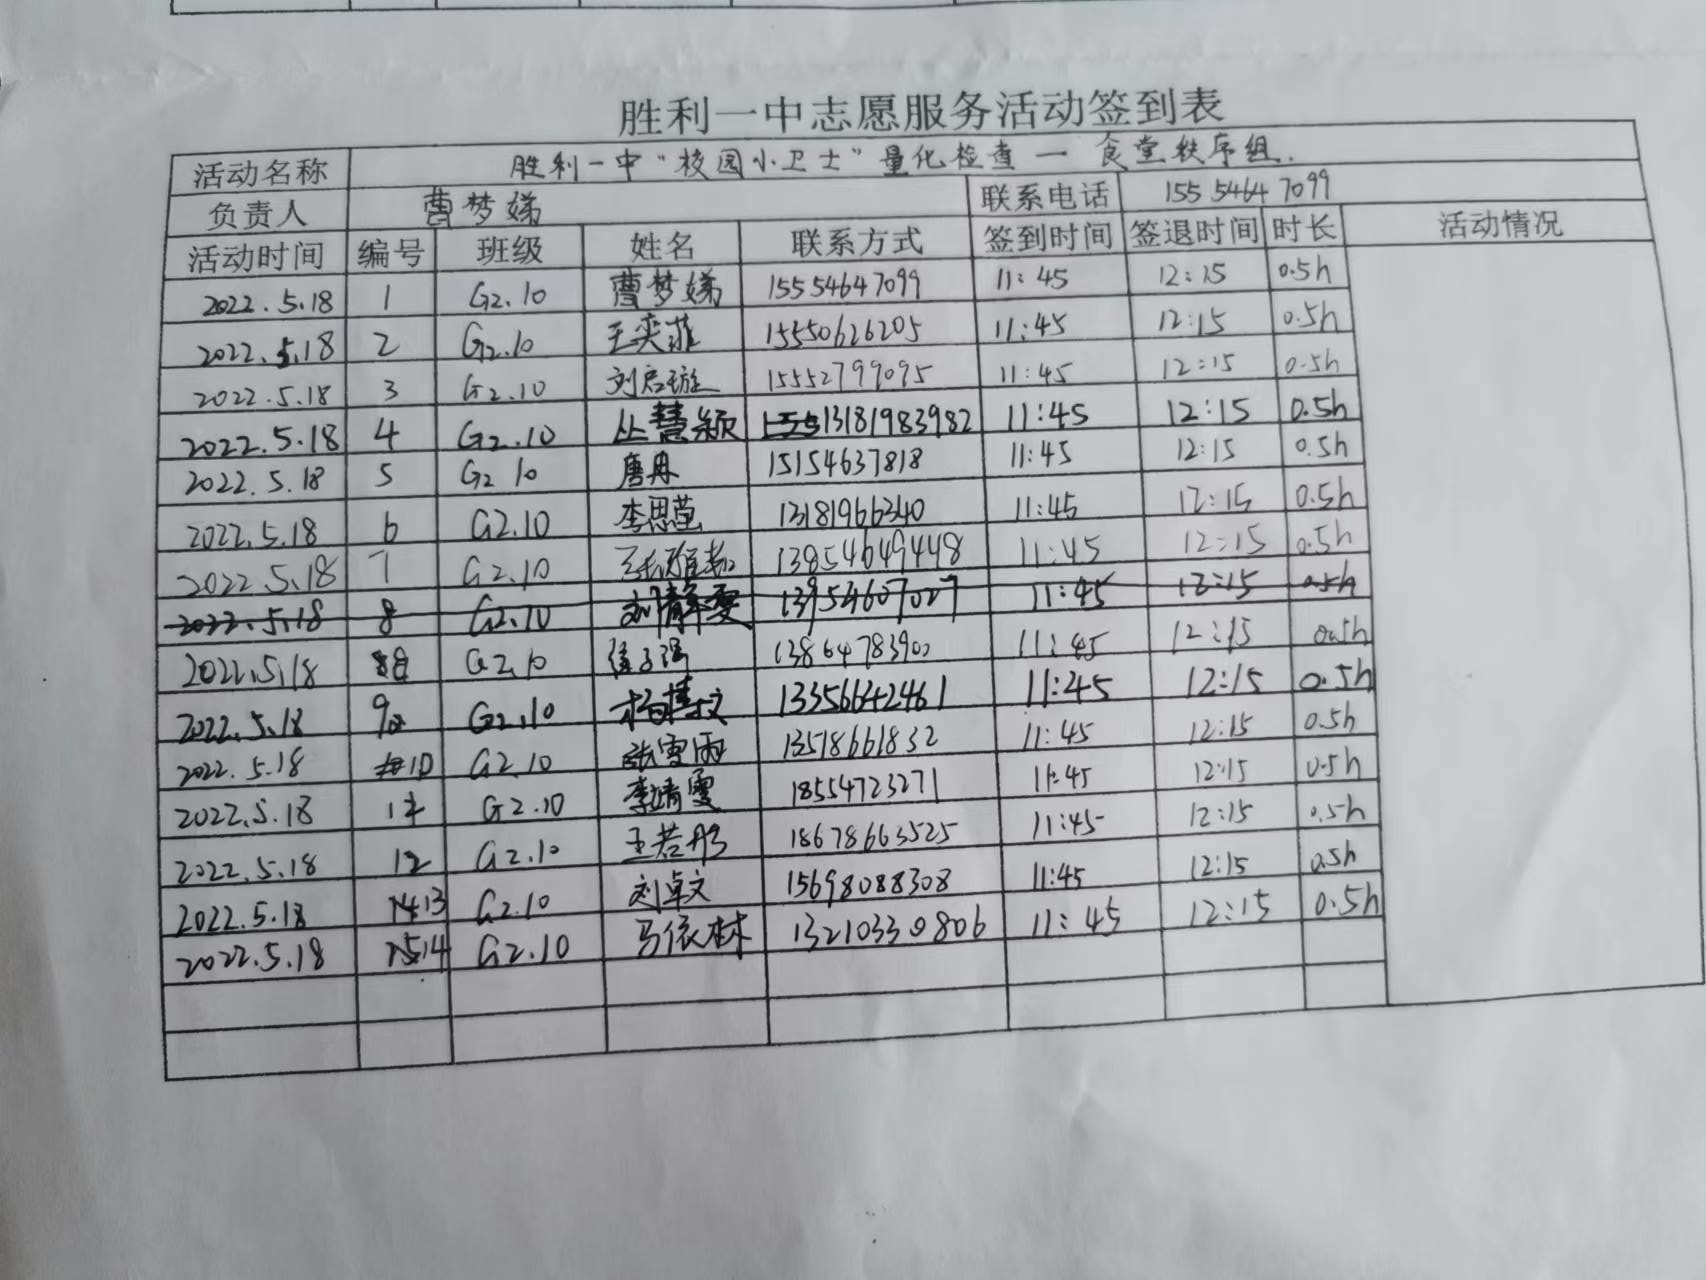 胜利一中志愿服务活动签到表
活动名称 胜利一中“校园小卫士”量化检查 — 食堂秩序组.
负责人 曹梦娣 联系电话 155 5464 7099
活动时间 编号 班级 姓名 联系方式 签到时间 签退时间 时长 活动情况
2022.5.18 1 G2.10 曹梦娣 15554647099 11:45 12:15 0.5h
2022.5.18 2 G2.10 王奕菲 15550626205 11:45 12:15 0.5h
2022.5.18 3 G2.10 刘启璇 15552799095 11:45 12:15 0.5h
2022.5.18 4 G2.10 丛慧颖 13181983982 11:45 12:15 0.5h
2022.5.18 5 G2.10 唐冉 15154637818 11:45 12:15 0.5h
2022.5.18 6 G2.10 李思莹 13181966340 11:45 12:15 0.5h
2022.5.18 7 G2.10 13854649448 11:45 12:15 0.5h
2022.5.18 8 G2.10 刘静雯 13954607027 11:45 12:15 0.5h
2022.5.18 8 G2.10 13864783900 11:45 12:15 0.5h
2022.5.18 9 G2.10 杨博文 13356642461 11:45 12:15 0.5h
2022.5.18 10 G2.10 张雪雨 13518661832 11:45 12:15 0.5h
2022.5.18 11 G2.10 李婧雯 18554723271 11:45 12:15 0.5h
2022.5.18 12 G2.10 王若彤 18678663525 11:45 12:15 0.5h
2022.5.18 13 G2.10 刘卓文 15698088308 11:45 12:15 0.5h
2022.5.18 14 G2.10 马依林 13210330806 11:45 12:15 0.5h